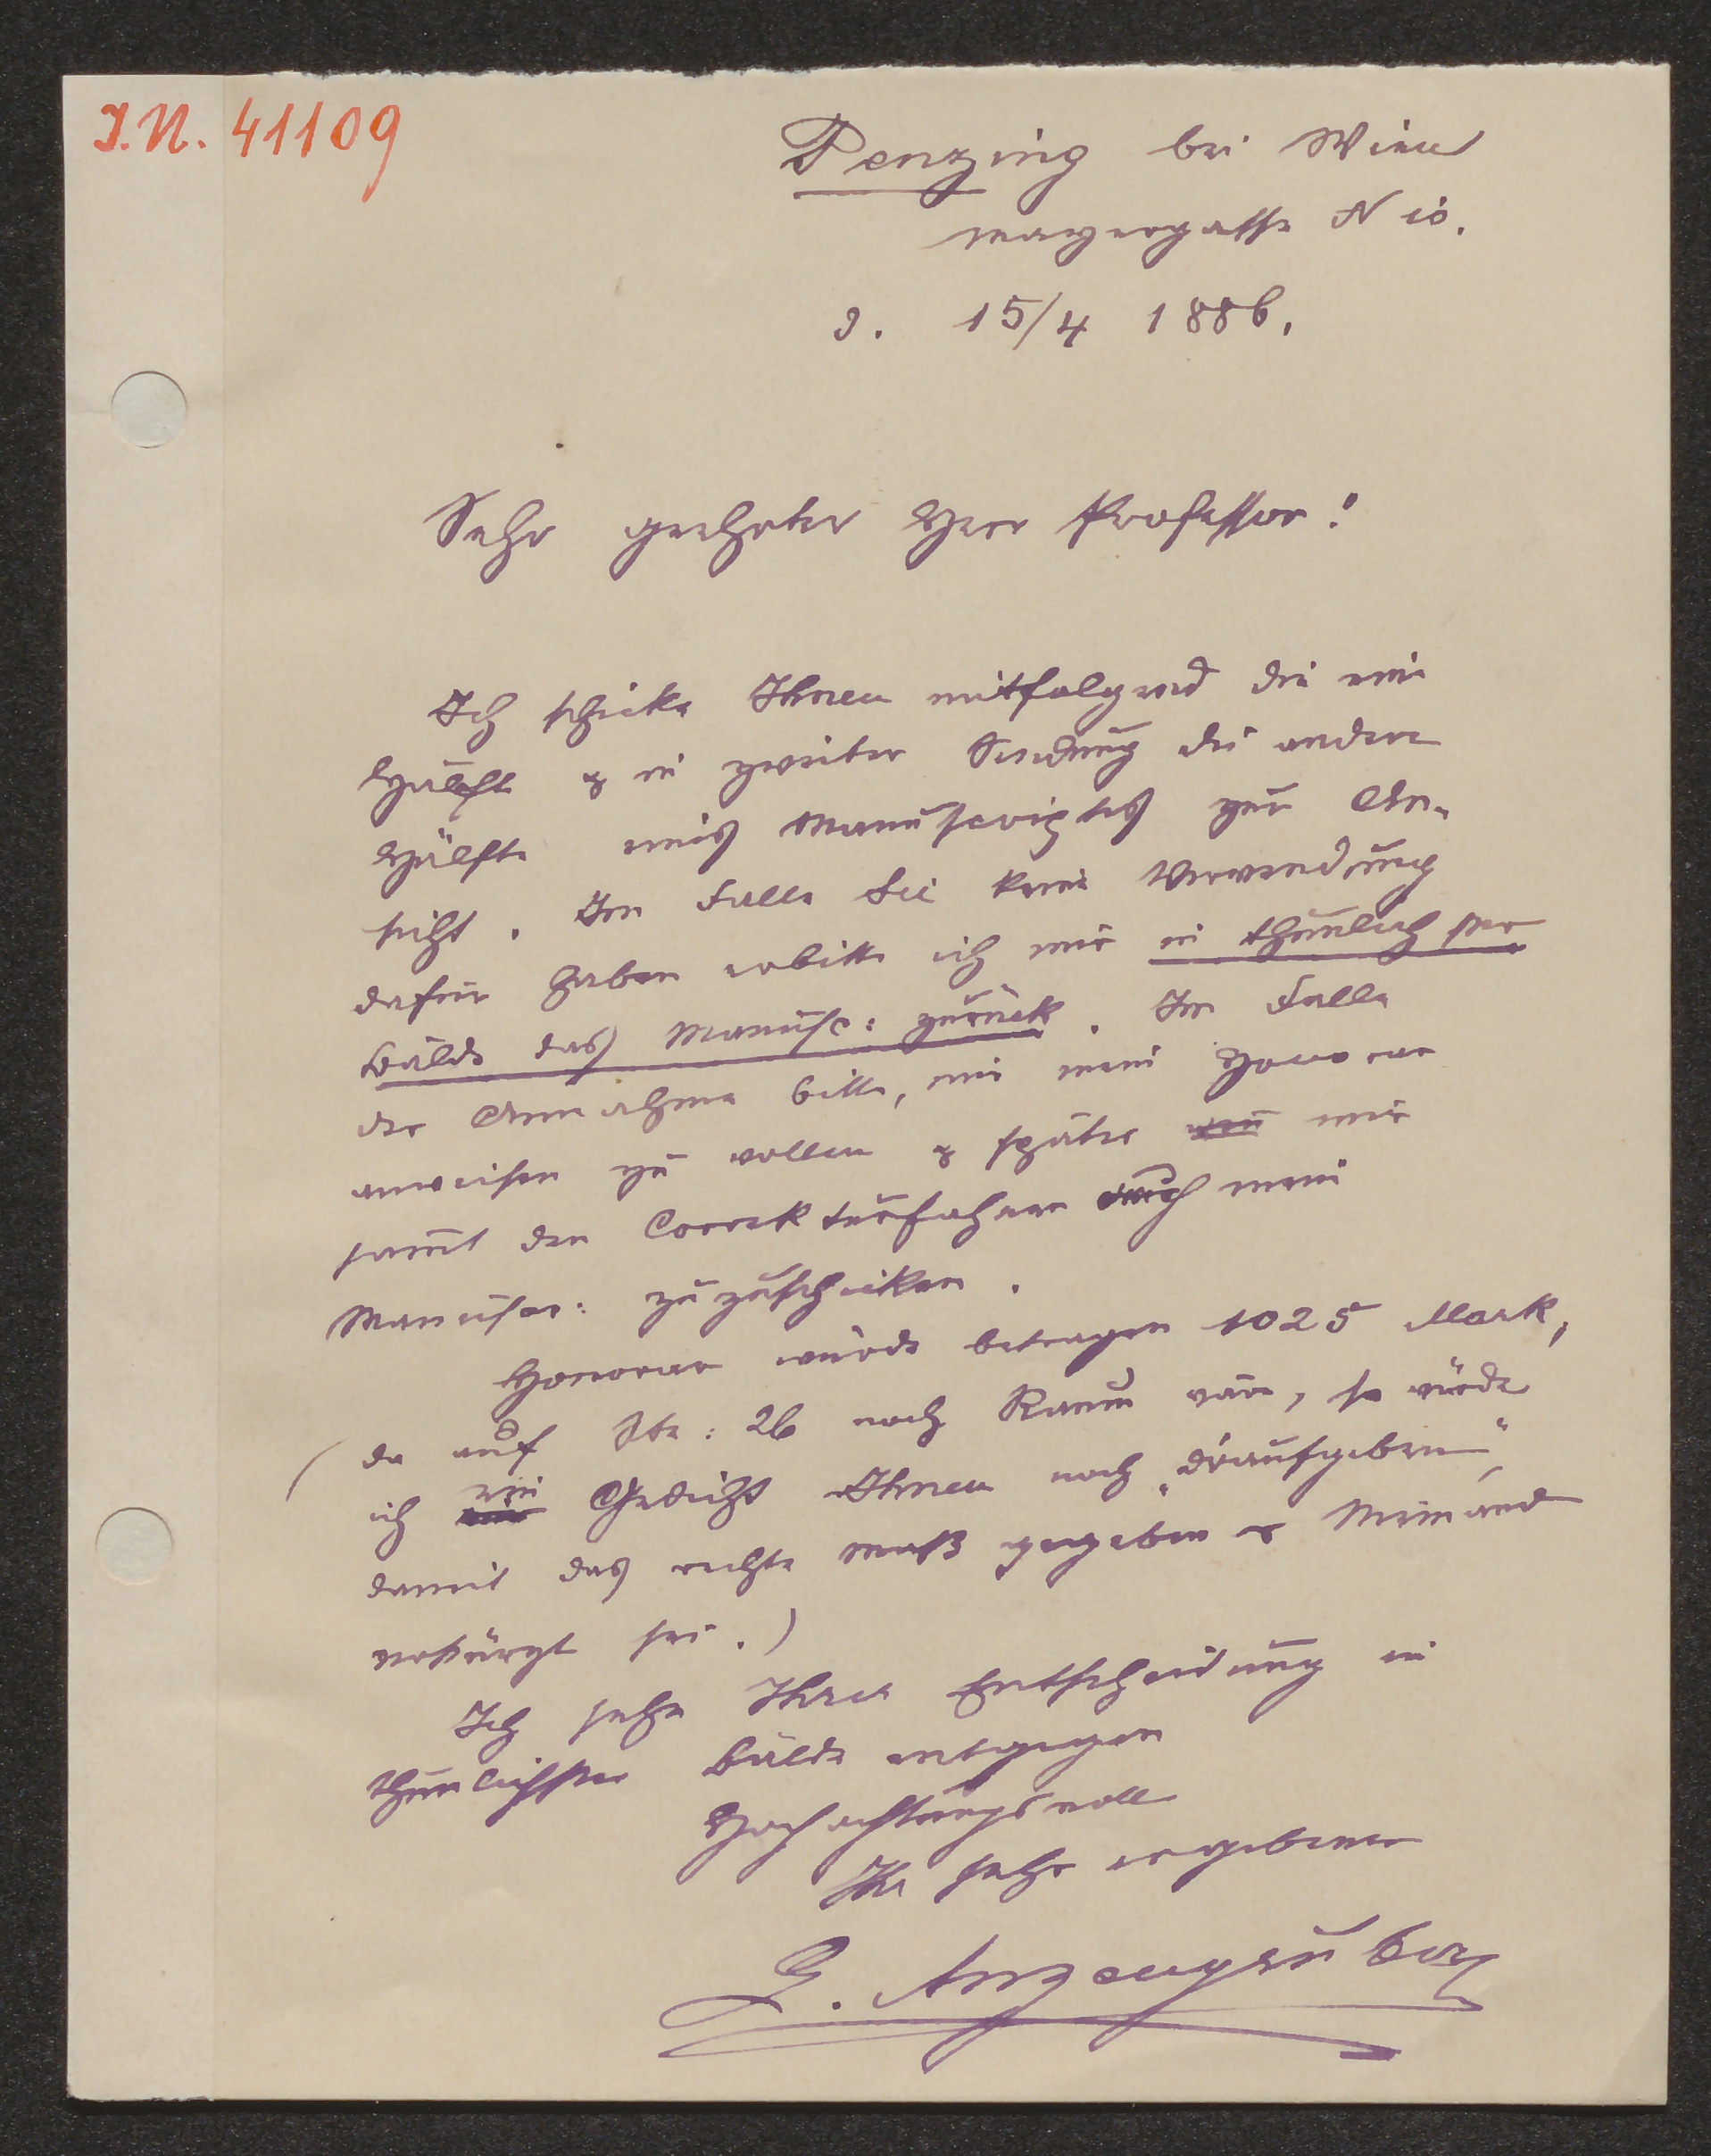 I.N. 41109
Penzing bei Wien
Mayergasse N 10.
d. 15/4 1886.
Sehr geehrter Herr Professor!
Ich schicke Ihnen mitfolgend die eine
Hälfte & in zweiter Sendung die andere
Hälfte eines Manuscriptes zur An-
sicht. Im Falle Sie keine Verwendung
dafür haben erbitte ich mir in thunlichster
Bälde das Manusc: zurück. Im Falle
der Annahme bitte, mir mein Honorar
anweisen zu wollen & später mir
samt den Correkturfahnen auch mein
Manuscr: zuzuschicken.
Honorar würde betragen 1025 Mark,
(da auf Ste: 26 noch Raum wäre, so würde
ich ein Gedicht Ihnen noch „draufgeben",
damit das rechte Maß gegeben & Niemand
verkürzt sei.)
Ich sehe Ihrer Entscheidung in
thunlichster Bälde entgegen
Hochachtungsvoll
Ihr sehr ergebener
L. Anzengruber